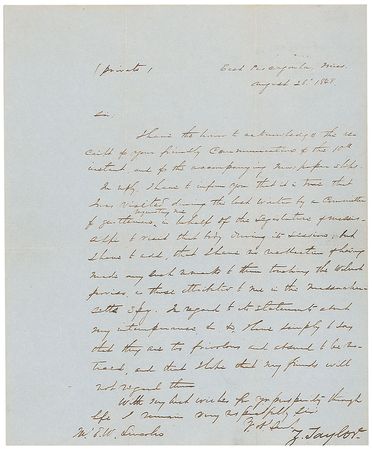 (private)
East Pascagoula, Miss.
August 28th 1848
Sir,
I have the honor to acknowledge the re-
ceipt of your friendly communication of the 10th
instant, and of the accompanying newspaper slips.
In reply, I have to inform you that it is true that
I was visited during the last winter by a Committee
of gentlemen, requesting me in behalf of the Legislature of Missis-
sippi to visit that body during its session; but
I have to add, that I have no recollection of having
made any such remarks to them touching the Wilmot
proviso, as those attributed to me in the Massachu-
setts Spy. In regard to its statements about
my intemperance &c I have simply to say
that they are too frivolous and absurd to be no-
ticed, and that I hope that my friends will
not regard them
With my best wishes for your prosperity through
life I remain very respectfully Sir
Yr Obt Servt
Z. Taylor
Mr E. W. Lincoln